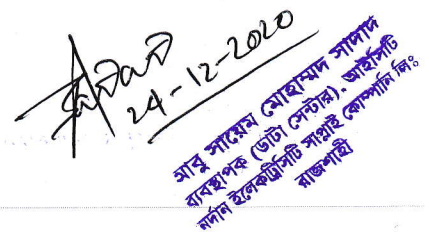 24-12-2020
আবু সায়েম মোহাম্মদ সাদাদ
ব্যবস্থাপক (ডাটা সেন্টার), আইসিটি
নর্দান ইলেকট্রিসিটি সাপ্লাই কোম্পানি লিঃ
রাজশাহী